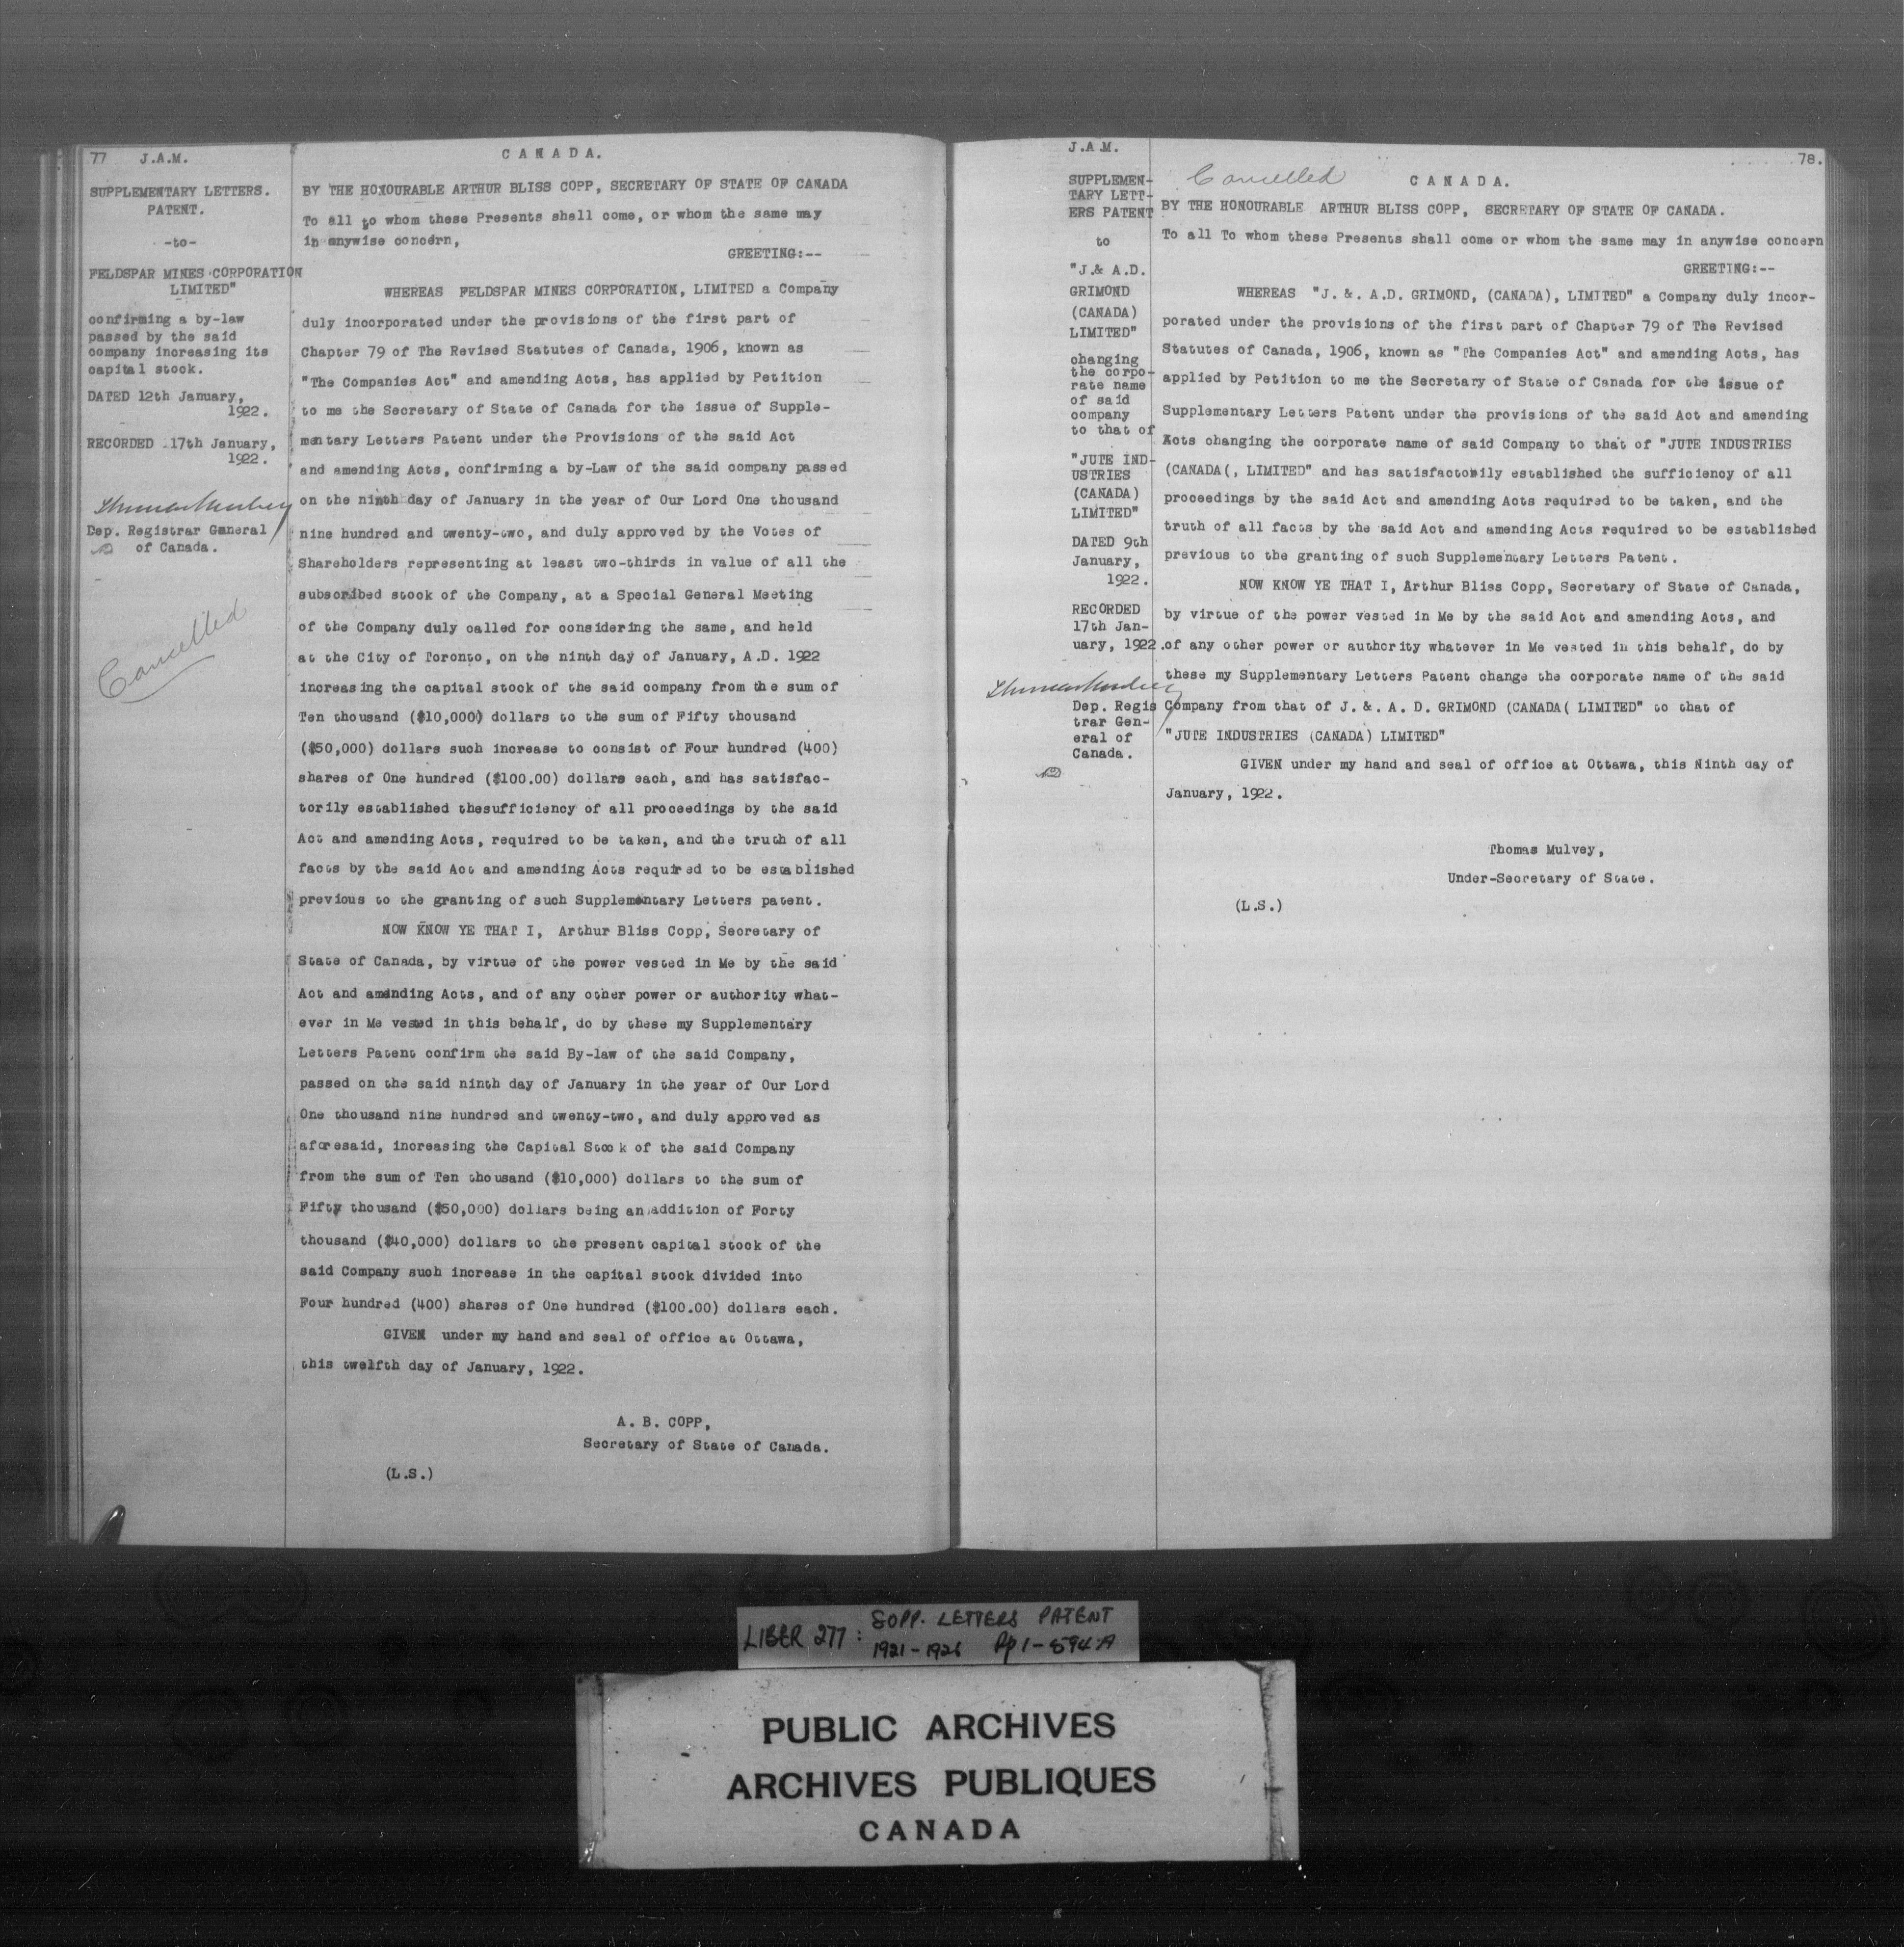 77 J.A.M.
SUPPLEMENTARY LETTERS.
PATENT.
-to-
FELDSPAR MINES CORPORATION
LIMITED"
confirming a by-law
passed by the said
company increasing its
capital stock.
DATED 12th January,
1922.
RECORDED 17th January,
1922.
Thomas Mulvey
Dep. Registrar General
of Canada.
Cancelled
CANADA.
BY THE HONOURABLE ARTHUR BLISS COPP, SECRETARY OF STATE OF CANADA
To all to whom these Presents shall come, or whom the same may
in anywise concern,
GREETING:--
WHEREAS FELDSPAR MINES CORPORATION, LIMITED a Company
duly incorporated under the provisions of the first part of
Chapter 79 of The Revised Statutes of Canada, 1906, known as
"The Companies Act" and amending Acts, has applied by Petition
to me the Secretary of State of Canada for the issue of Supple-
mentary Letters Patent under the Provisions of the said Act
and amending Acts, confirming a by-Law of the said company passed
on the ninth day of January in the year of Our Lord One thousand
nine hundred and twenty-two, and duly approved by the Votes of
Shareholders representing at least two-thirds in value of all the
subscribed stock of the Company, at a Special General Meeting
of the Company duly called for considering the same, and held
at the City of Toronto, on the ninth day of January, A.D. 1922
increasing the capital stock of the said company from the sum of
Ten thousand ($10,000) dollars to the sum of Fifty thousand
($50,000) dollars such increase to consist of Four hundred (400)
shares of One hundred ($100.00) dollars each, and has satisfac-
torily established thesufficiency of all proceedings by the said
Act and amending Acts, required to be taken, and the truth of all
facts by the said Act and amending Acts required to be established
previous to the granting of such Supplementary Letters patent.
NOW KNOW YE THAT I, Arthur Bliss Copp, Secretary of
State of Canada, by virtue of the power vested in Me by the said
Act and amending Acts, and of any other power or authority what-
ever in Me vested in this behalf, do by these my Supplementary
Letters Patent confirm the said By-law of the said Company,
passed on the said ninth day of January in the year of Our Lord
One thousand nine hundred and twenty-two, and duly approved as
aforesaid, increasing the Capital Stock of the said Company
from the sum of Ten thousand ($10,000) dollars to the sum of
Fifty thousand ($50,000) dollars being an addition of Forty
thousand ($40,000) dollars to the present capital stock of the
said Company such increase in the capital stock divided into
Four hundred (400) shares of One hundred ($100.00) dollars each.
GIVEN under my hand and seal of office at Ottawa,
this twelfth day of January, 1922.
A. B. COPP,
Secretary of State of Canada.
(L.S.)
J.A.M.
SUPPLEMEN-
TARY LETT-
ERS PATENT
to
"J.& A.D.
GRIMOND
(CANADA)
LIMITED"
changing
the corpo-
rate name
of said
company
to that of
"JUTE IND-
USTRIES
(CANADA)
LIMITED"
DATED 9th
January,
1922.
RECORDED
17th Jan-
uary, 1922.
Thomas Mulvey
Dep. Regis
trar Gen-
eral of
Canada.
78.
Cancelled
CANADA.
BY THE HONOURABLE ARTHUR BLISS COPP, SECRETARY OF STATE OF CANADA.
To all To whom these Presents shall come or whom the same may in anywise concern
GREETING:--
WHEREAS "J. &. A.D. GRIMOND, (CANADA), LIMITED" a Company duly incor-
porated under the provisions of the first part of Chapter 79 of The Revised
Statutes of Canada, 1906, known as "The Companies Act" and amending Acts, has
applied by Petition to me the Secretary of State of Canada for the issue of
Supplementary Letters Patent under the provisions of the said Act and amending
Acts changing the corporate name of said Company to that of "JUTE INDUSTRIES
(CANADA(, LIMITED" and has satisfactorily established the sufficiency of all
proceedings by the said Act and amending Acts required to be taken, and the
truth of all facts by the said Act and amending Acts required to be established
previous to the granting of such Supplementary Letters Patent.
NOW KNOW YE THAT I, Arthur Bliss Copp, Secretary of State of Canada,
by virtue of the power vested in Me by the said Act and amending Acts, and
of any other power or authority whatever in Me vested in this behalf, do by
these my Supplementary Letters Patent change the corporate name of the said
Company from that of J. &. A. D. GRIMOND (CANADA( LIMITED" to that of
"JUTE INDUSTRIES (CANADA) LIMITED"
GIVEN under my hand and seal of office at Ottawa, this Ninth day of
January, 1922.
Thomas Mulvey,
Under-Secretary of State.
(L.S.)
LIBER 277: SUPP. LETTERS PATENT
1921-1926 Pp 1-594A
PUBLIC ARCHIVES
ARCHIVES PUBLIQUES
CANADA